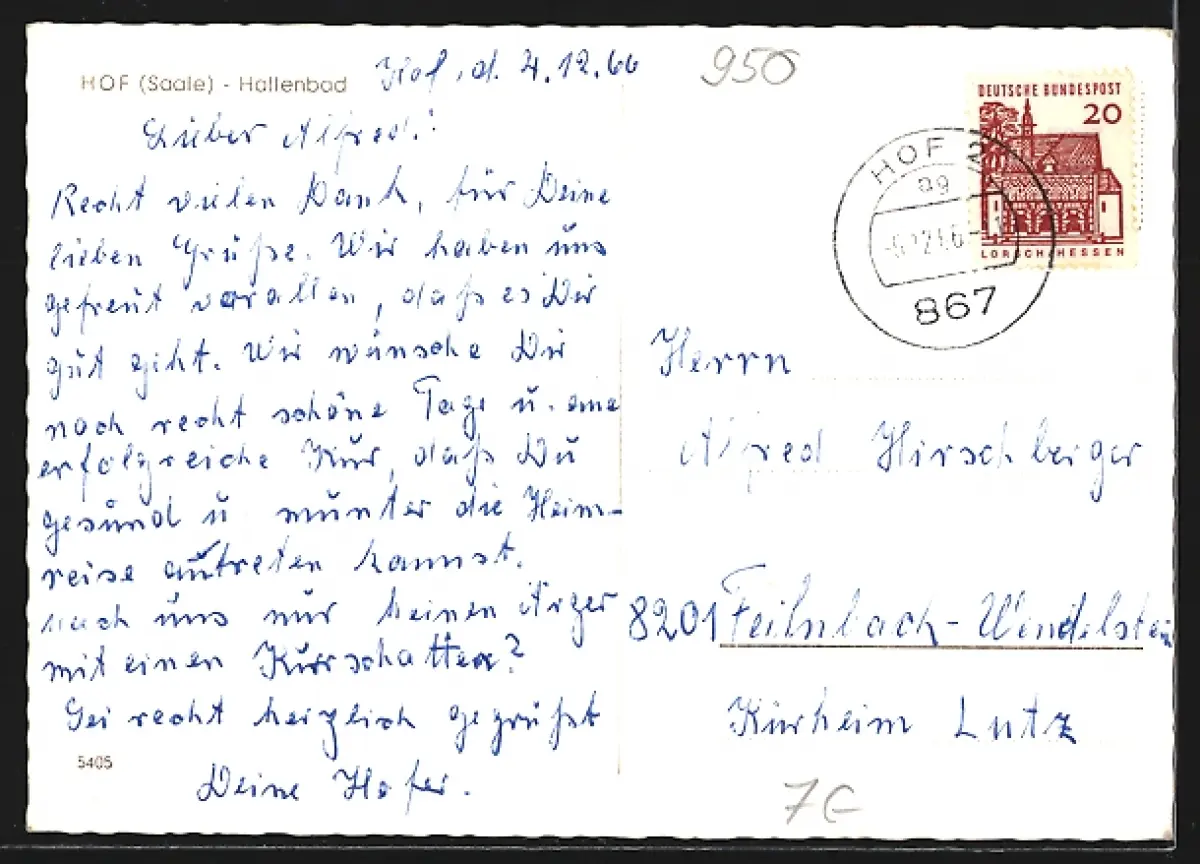 HOF (Saale) - Hallenbad
Hof, d. 4.12.66
Lieber Alfred!
Recht vielen Dank, für Deine
lieben Grüße. Wir haben uns
gefreut vorallen, daß es Dir
gut geht. Wir wünsche Dir
noch recht schöne Tage u. eine
erfolgreiche Kur, daß Du
gesund u. munter die Heim-
reise antreten kannst.
mach uns nur keinen Ärger
mit einen Kurschatten?
Sei recht herzlich gegrüßt
Deine Hofer.
5405
950
DEUTSCHE BUNDESPOST
20
LORSCH/HESSEN
HOF 2
ag
867
Herrn
Alfred Hirschberger
8201 Feilnbach-Wendelstein
Kurheim Lutz
7€